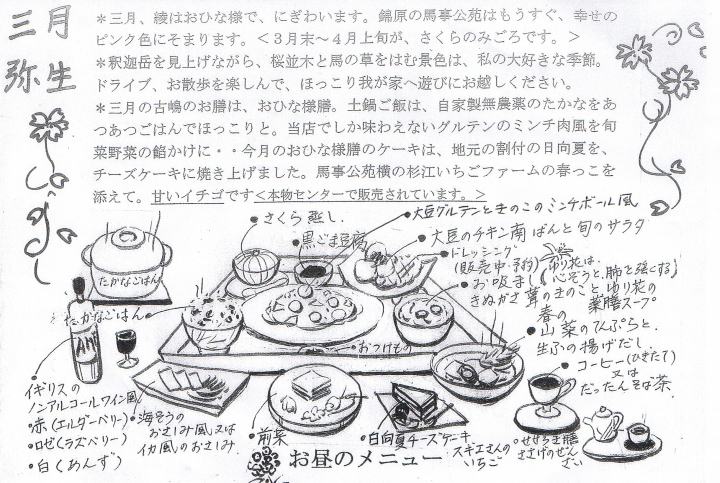 三月
弥生
＊三月、綾はおひな様で、にぎわいます。錦原の馬事公苑はもうすぐ、幸せの
ピンク色にそまります。＜３月末～４月上旬が、さくらのみごろです。＞
＊釈迦岳を見上げながら、桜並木と馬の草をはむ景色は、私の大好きな季節。
ドライブ、お散歩を楽しんで、ほっこり我が家へ遊びにお越しください。
＊三月の古嶋のお膳は、おひな様膳。土鍋ご飯は、自家製無農薬のたかなをあ
つあつごはんでほっこりと。当店でしか味わえないグルテンのミンチ肉風を旬
菜野菜の餡かけに・・今月のおひな様膳のケーキは、地元の割付の日向夏を、
チーズケーキに焼き上げました。馬事公苑横の杉江いちごファームの春っこを
添えて。甘いイチゴです＜本物センターで販売されています。＞
・さくら蒸し.
・大豆グルテンときのこのミンチボール風
黒ごま豆腐
・大豆のチキン南ばんと旬のサラダ
・ドレッシング
(販売中・予約)
ゆり花は、
心ぞうと、肺を強くする
たかなごはん
・お吸まし
きぬがさ茸のきのこと、ゆり花の
薬膳スープ
たかなごはん・
春の
・山菜のてんぷらと、
生ふの揚げだし
・おつけもの
・コーヒー(ひきたて)
又は
だったんそば茶.
・イギリスの
ノンアルコールワイン風
・赤(エルダーベリー)
・ロゼ(ラズベリー)
・白(あんず)
・海そうの
おさしみ風又は
イカ風のおさしみ
・前菜
・日向夏チーズケーキ
スギエさんの
いちご
ささげのぜん
ざい
お昼のメニュー